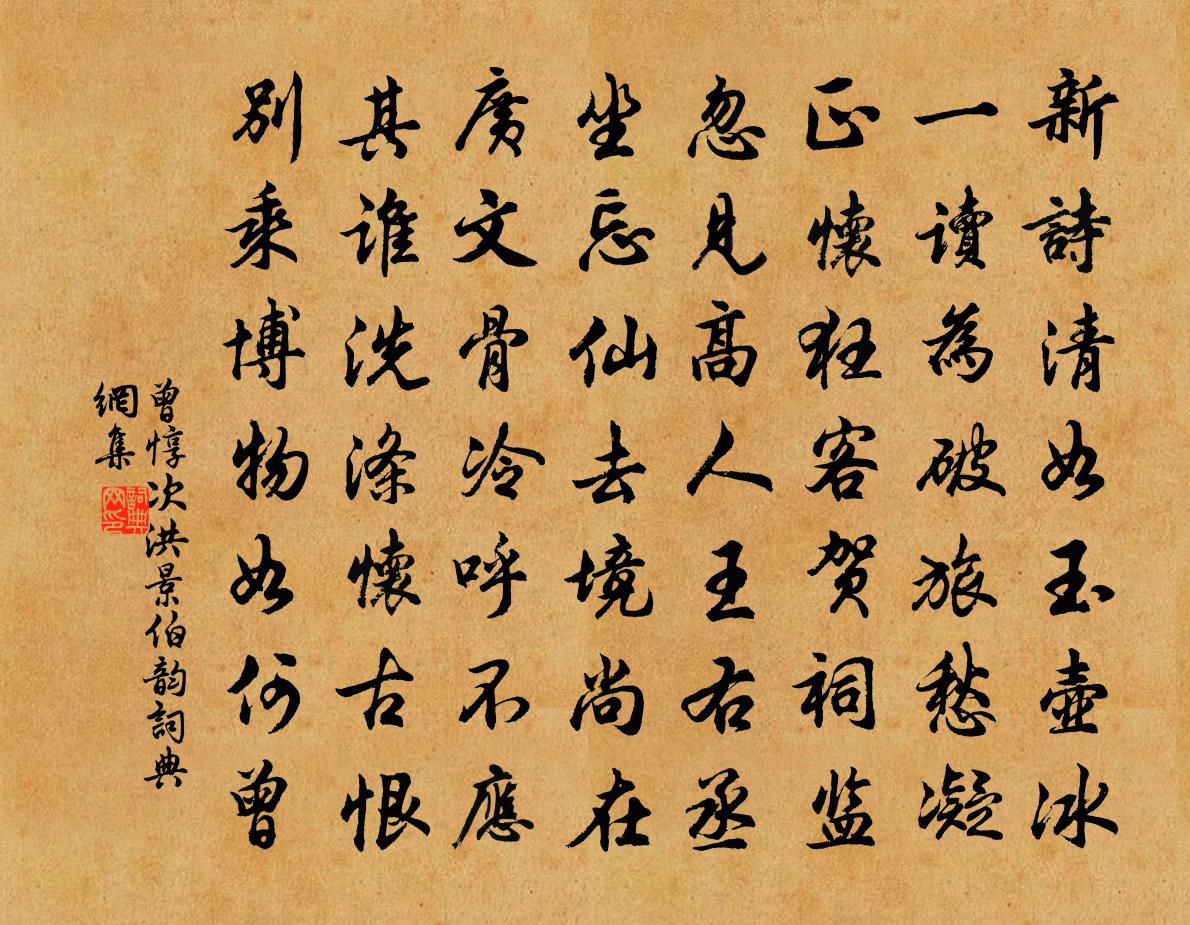 新詩清如玉壺冰
一讀為破旅愁凝
正懷狂客贺祠监
忽見高人王右丞
坐忘仙去境尚在
廣文骨冷呼不應
其誰洗滌懷古恨
別乘博物如何曾
曾惇次洪景伯韵詞典
網集
詞典